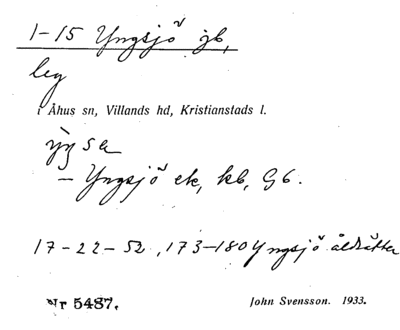 1-15 Yngsjö gb,
leg
i Åhus sn, Villands hd, Kristianstads l.
ẏŋsa
- Yngsjö ek, kb, Gb.
17-22-52, 173-180 Yngsjö ålsätter
Nr 5487.
John Svensson. 1933.